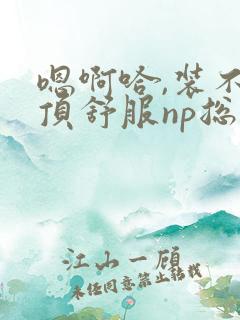 嗯啊哈,装不
顶舒服np总
江山一顾
未经同意禁止转载